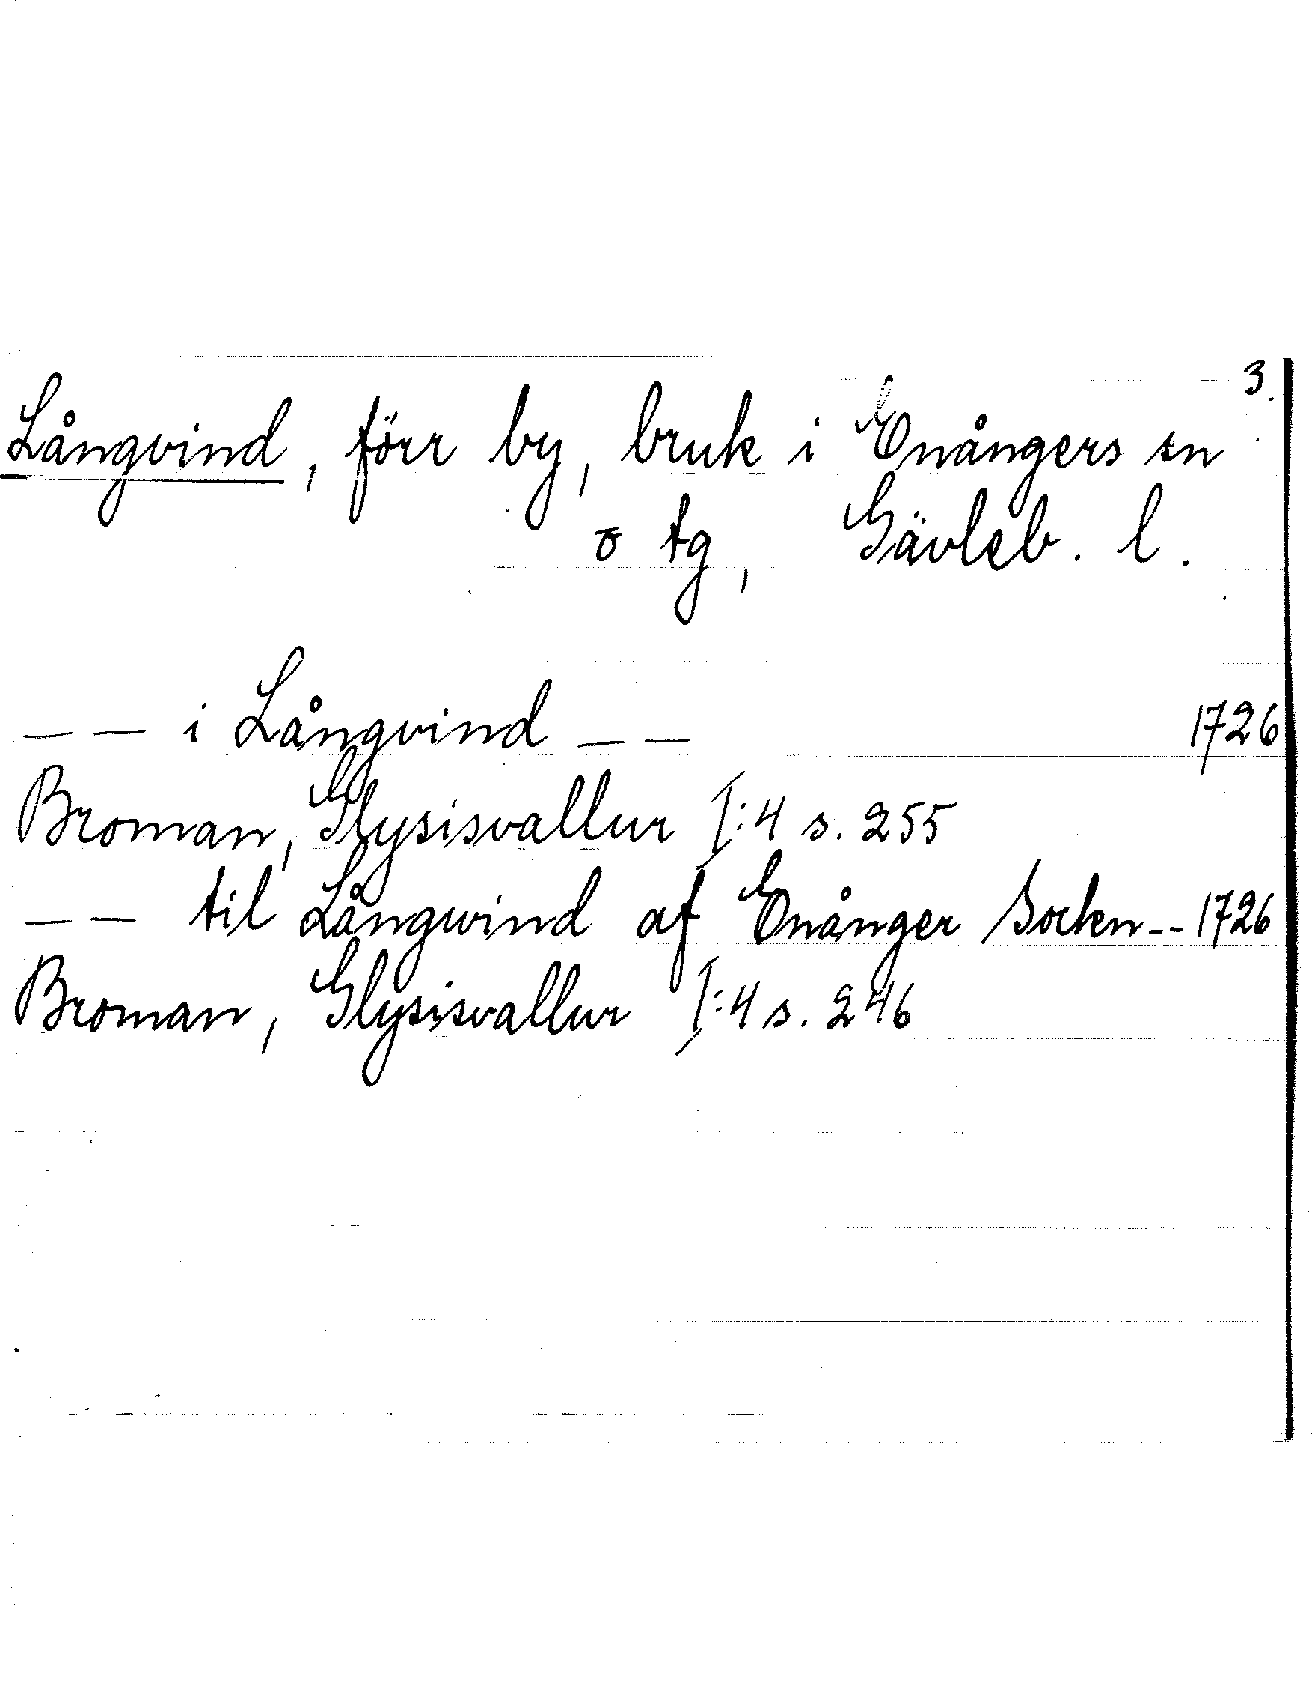 3.
Långvind, förr by, bruk i Enångers sn
o tg, Gävleb. l.
— — i Långvind — — 1726
Broman, Glysisvallur I:4 s. 255
— — til Långwind af Enånger Socken -- 1726
Broman, Glysisvallur I:4 s. 246